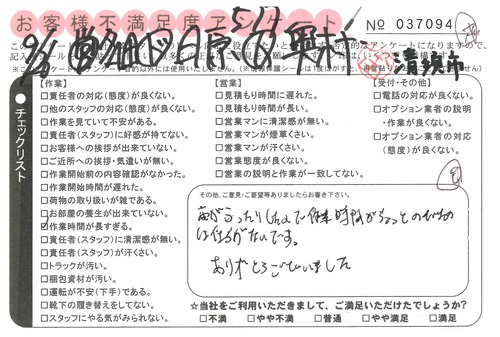 お客様不満足度アンケート
No 037094
清須市
チェックリスト
【作業】
□責任者の対応(態度)が良くない。
□他のスタッフの対応(態度)が良くない。
□作業を見ていて不安がある。
□責任者(スタッフ)に好感が持てない。
□お客様への挨拶が出来ていない。
□ご近所への挨拶・気遣いが無い。
□作業開始前の内容確認がなかった。
□作業開始時間が遅れた。
□荷物の取り扱いが雑である。
□お部屋の養生が出来ていない。
□作業時間が長すぎる。
□責任者(スタッフ)に清潔感が無い。
□責任者(スタッフ)が汗くさい。
□トラックが汚い。
□梱包資材が汚い。
□運転が不安(下手)である。
□靴下の履き替えをしてない。
□スタッフにやる気がみられない。
【営業】
□見積もり時間に遅れた。
□見積もり時間が長い。
□営業マンに清潔感が無い。
□営業マンが煙草くさい。
□営業マンが汗くさい。
□営業態度が良くない。
□営業の説明と作業が一致してない。
【受付・その他】
□電話の対応が良くない。
□オプション業者の説明
・作業が良くない。
□オプション業者の対応
(態度)が良くない。
その他、ご意見・ご要望等ありましたらお書き下さい。
雨がふったりしたので作業時間がかかることの
は仕方がないです。
ありがとうございました
☆当社をご利用いただきまして、ご満足いただけたでしょうか?
□不満 □やや不満 □普通 □やや満足 □満足